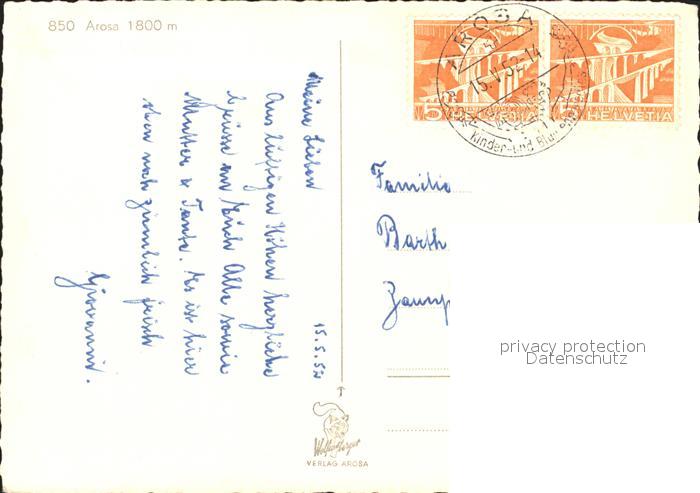 850 Arosa 1800 m
15.5.52
Meine Lieben
Aus luftigen Höhen herzliche
Grüsse an Euch Alle sowie
Mutter & Tante. Es ist hier
oben noch ziemlich frisch
Giovanni.
AROSA
15.V.52-14
Kinder-und
HELVETIA
5
HELVETIA
Familie
Barth
privacy protection
Datenschutz
VERLAG AROSA